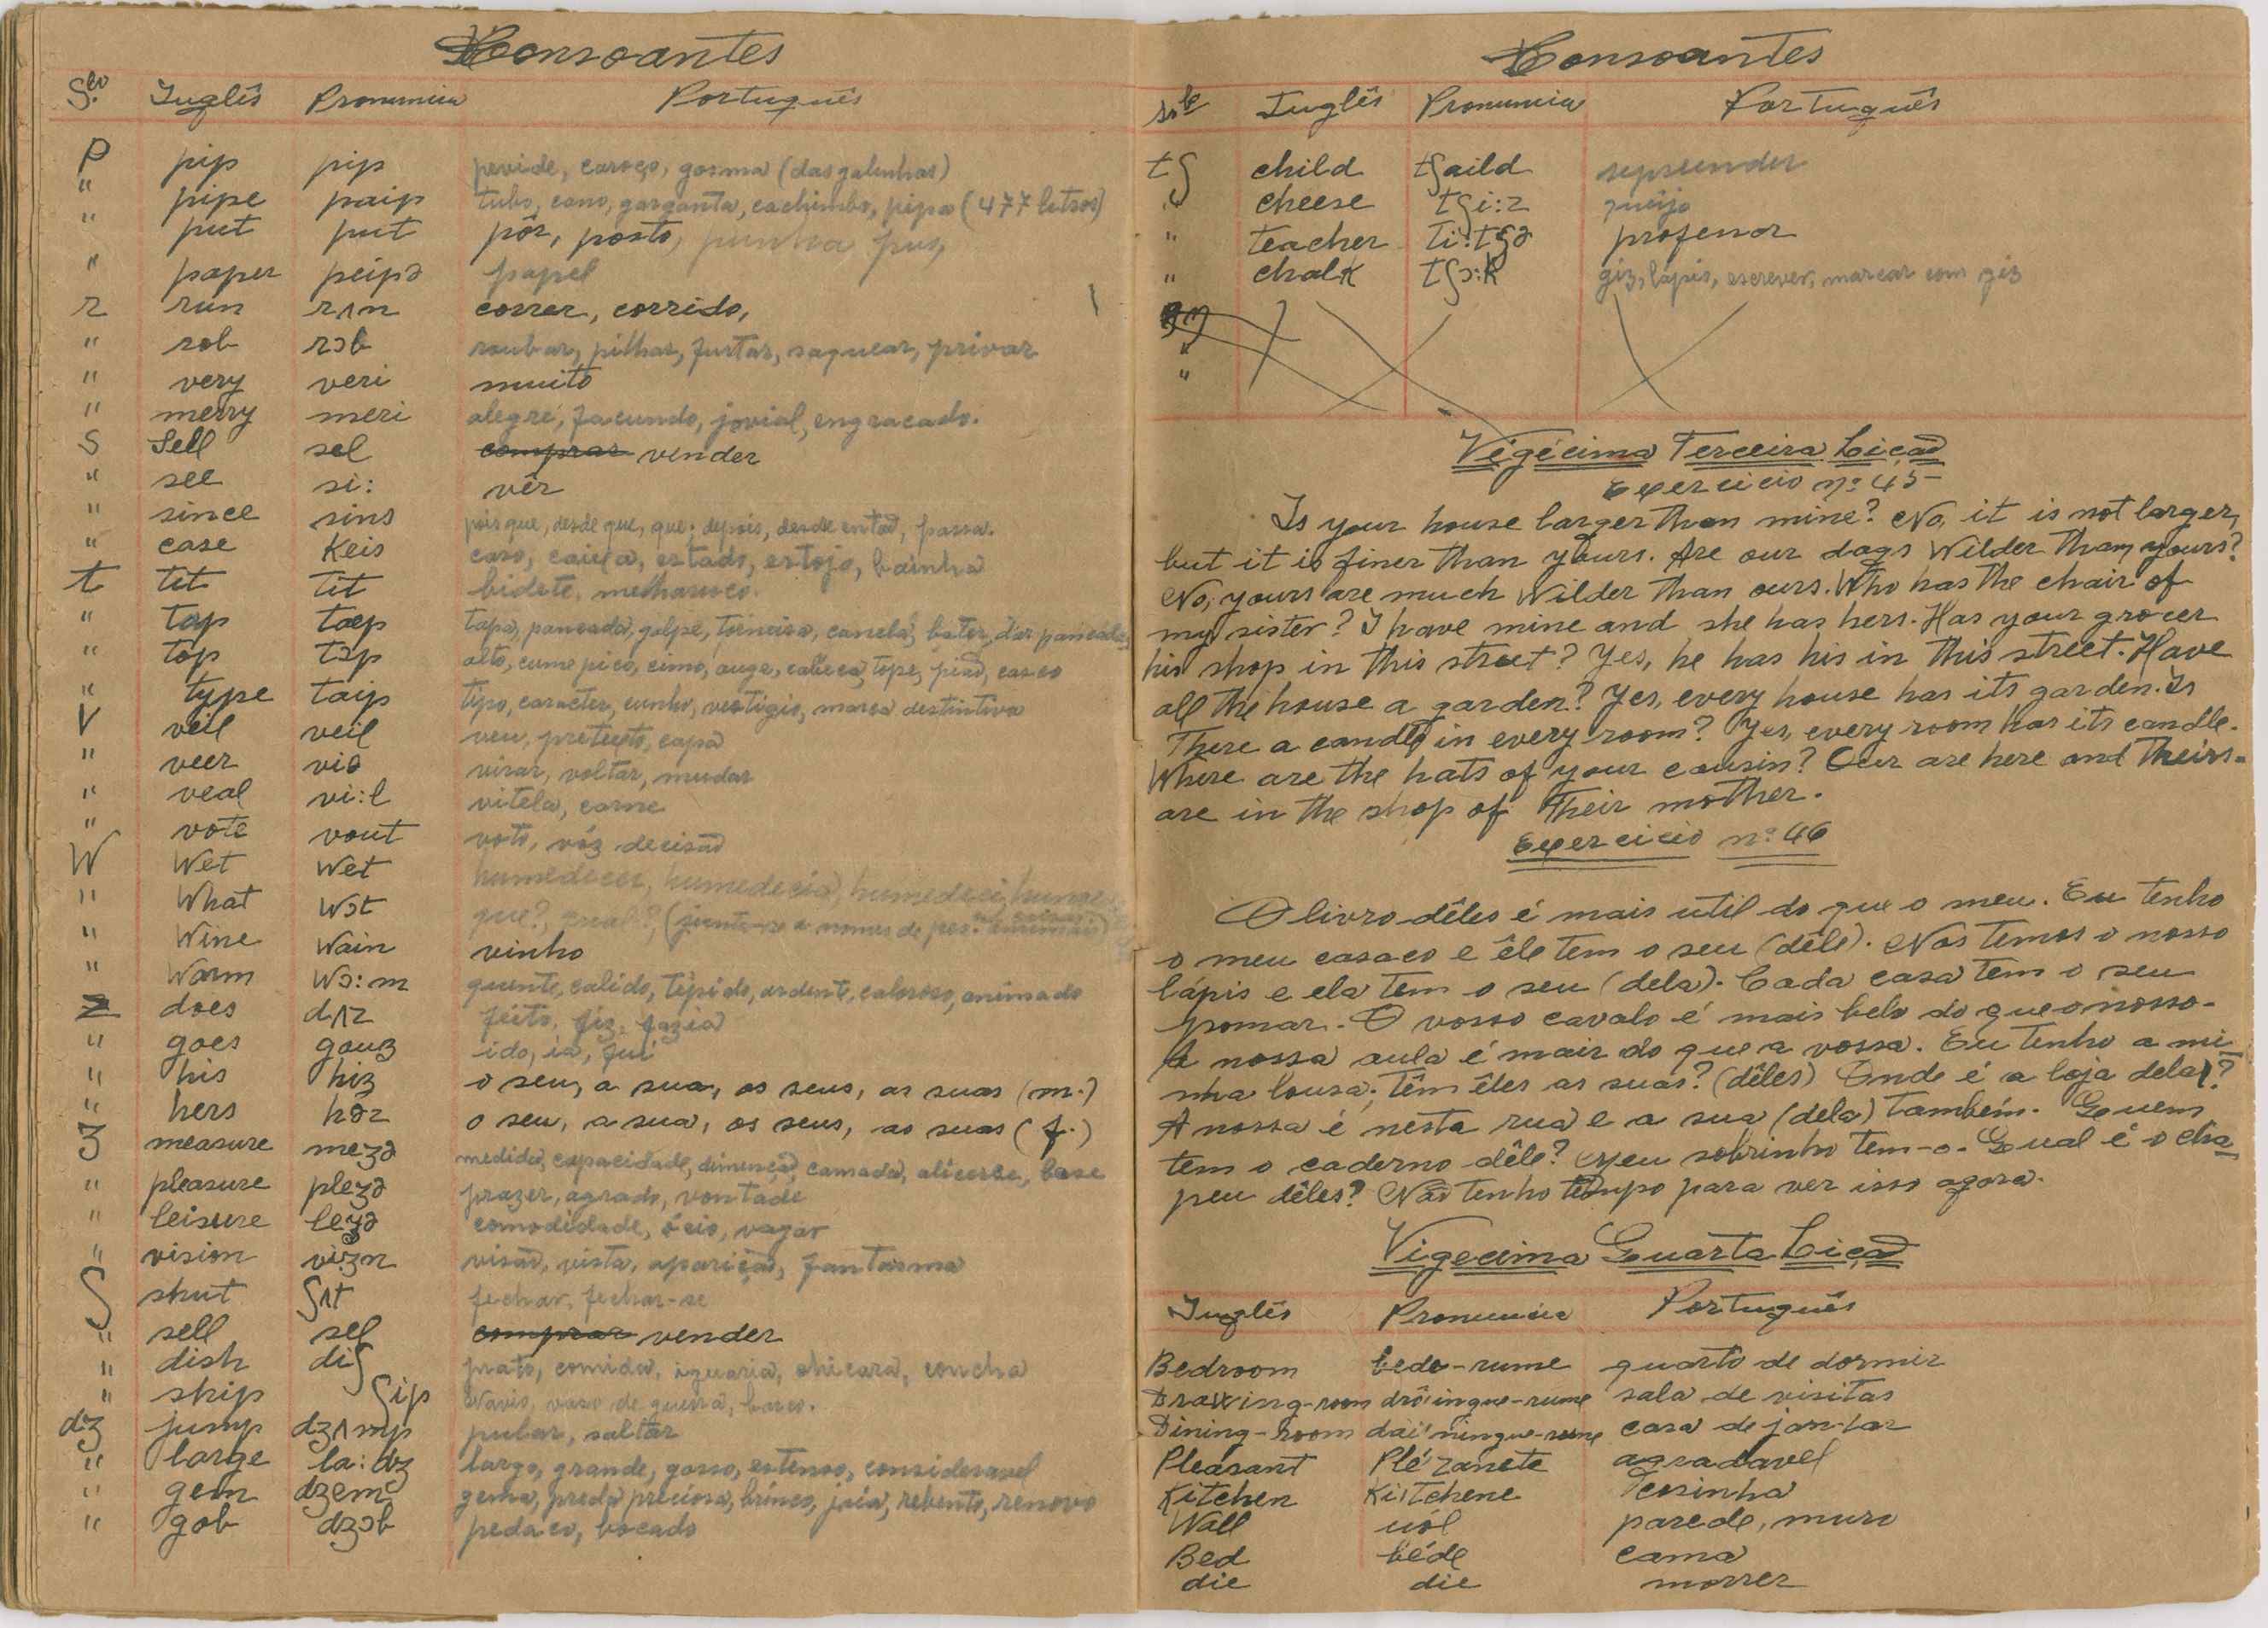 Consoantes
S.lo Inglês Pronuncia Português
p pip pip pevide, caroço, gosma (das galinhas)
" pipe paip tubo, cano, garganta, cachimbo, pipa (477 litros)
" put put pôr, posto, punha pus,
" paper peipə papel
r run rʌn correr, corrido,
" rob rɔb roubar, pilhar, furtar, saquear, privar
" very veri muito
" merry meri alegre, facundo, jovial, engracado.
s Sell sel comprar vender
" see si: vêr
" since sins pois que, desde que, que; depois, desde então, passa.
" case Keis caso, caixa, estado, estojo, bainha
t tit tit bidete, melharuco.
" tap taep tapa, pancada, golpe, torneira, canela, bater, dar pancada,
" top tɔp alto, cume pico, cimo, auge, cabeca, tope, pião, casco
" type taip tipo, caracter, cunho, vestigio, marca destintiva
V veil veil veu, pretexto, capa
" veer viə virar, voltar, mudar
" veal vi:l vitela, carne
" vote vout voto, vóz decisão
W Wet Wet humedecer, humedecia, humedeci, hume
" What Wɔt que?, qual?, (junta-se a nomes de pes.
" Wine Wain vinho
" Warm Wɔ:m quente, calido, tépido, ardente, caloroso, animado
z does dʌz feito, fiz, fazia
" goes gouz ido, ia, fui
" his hiz o seu, a sua, os seus, as suas (m.)
" hers həz o seu, a sua, os seus, as suas (f.)
ʒ measure meʒə medida, capacidade, dimensão, camada, alicerce, base
" pleasure pleʒə prazer, agrado, vontade
" leisure leʒə comodidade, ócio, vagar
" vision viʒn visão, vista, aparição, fantasma
ʃ shut ʃʌt fechar, fechar-se
" sell sel comprar vender
" dish diʃ prato, comida, iguaria, chicara, concha
" ship ʃip Navio, vaso de guerra, barco.
dʒ jump dʒʌmp pular, saltar
" large la:dʒ largo, grande, gosso, estenso, consideravel
" gem dʒem gema, preda preciosa, brinco, joia, rebento, renovo
" gob dʒɔb pedaco, bocado
Consoantes
Sb.lo Inglês Pronuncia Português
tʃ child tʃaild repreender
" cheese tʃi:z queijo
" teacher ti:tʃə professor
" chalk tʃɔ:k giz, lápis, escrever, marcar com giz
"
"
Vigécima Terceira Lição
Exercicio nº 45
Is your house larger than mine? No, it is not larger,
but it is finer than yours. Are our dogs Wilder than yours?
No, yours are much Wilder than ours. Who has the chair of
my sister? I have mine and she has hers. Has your grocer
his shop in this street? Yes, he has his in this street. Have
all the house a garden? Yes, every house has its garden. Is
There a candle in every room? Yes, every room has its candle.
Where are the hats of your cousin? Our are here and theirs
are in the shop of their mother.
Exercicio nº 46
O livro dêles é mais util do que o meu. Eu tenho
o meu casaco e êle tem o seu (dêle). Nós temos o nosso
lápis e ela tem o seu (dela). Cada casa tem o seu
pomar. O vosso cavalo é mais belo do que o nosso.
A nossa aula é mair do que a vossa. Eu tenho a mi-
nha lousa; têm êles as suas? (dêles) Onde é a loja dela?
A nossa é nesta rua e a sua (dela) também. Quem
tem o caderno dêle? Meu sobrinho tem-o. Qual é o cha-
peu dêles? Não tenho tempo para ver isso agora.
Vigecima Quarta Lição
Inglês Pronuncia Português
Bedroom bede-rume quarto de dormir
Drawing-room drô'ingue-rume sala de visitas
Dining-Room dai'ningue-rume casa de jantar
Pleasant Plé'zanete agradavel
Kitchen Ki'tchene cosinha
Wall uól parede, muro
Bed béde cama
die die morrer